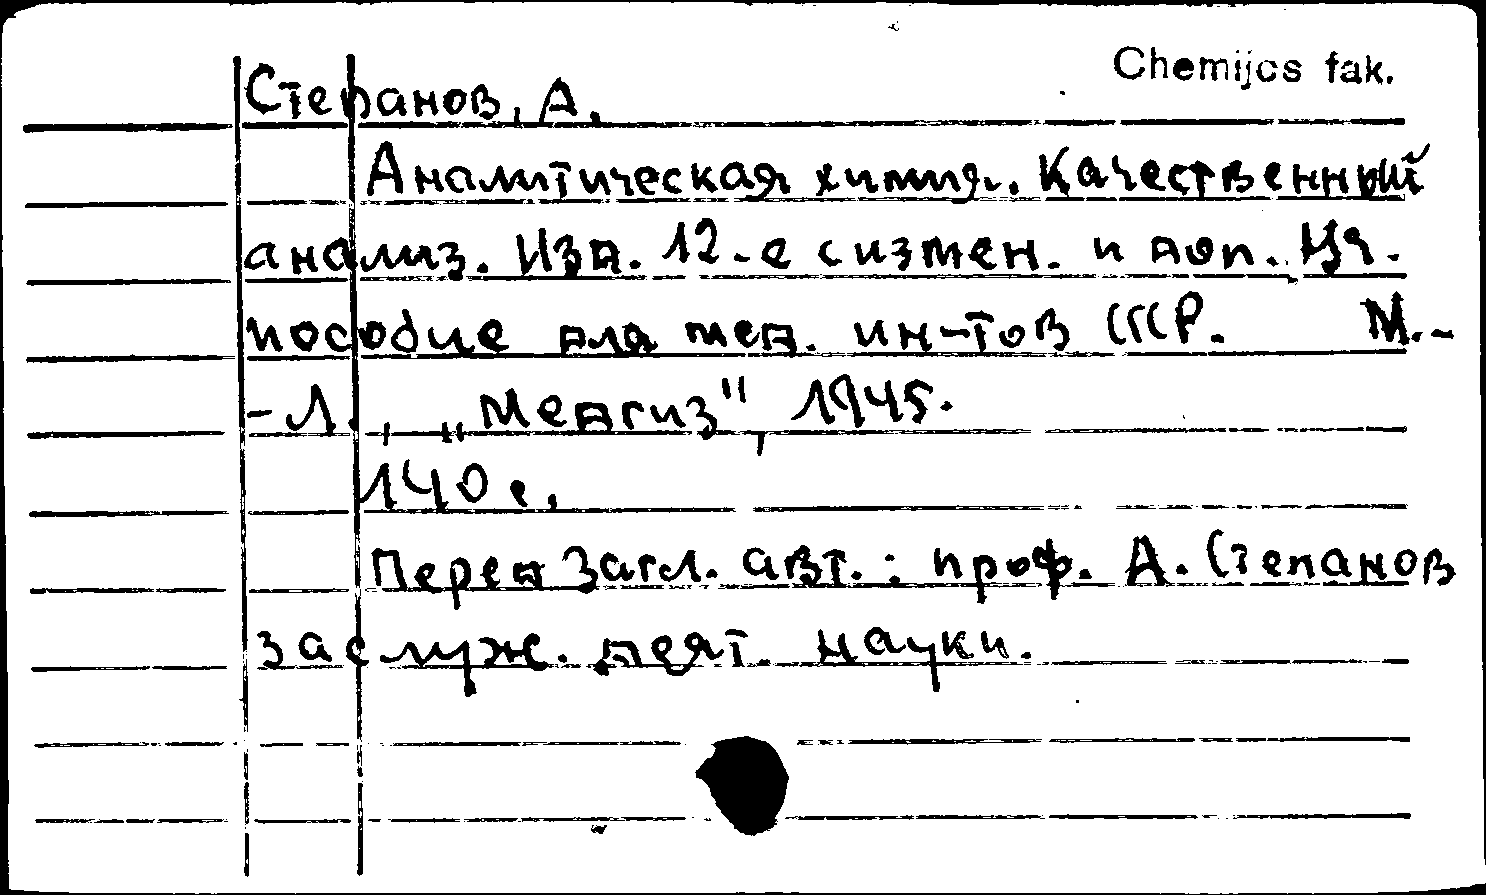 Chemijos fak.
Степанов, А.
Аналитическая химия. Качественный
анализ. Изд. 12-е с измен. и доп. Уч.
пособие для мед. ин-тов СССР. М.-
-Л., „Медгиз", 1945.
140 с.
Перед загл. авт.: проф. А. Степанов
заслуж. деят. науки.